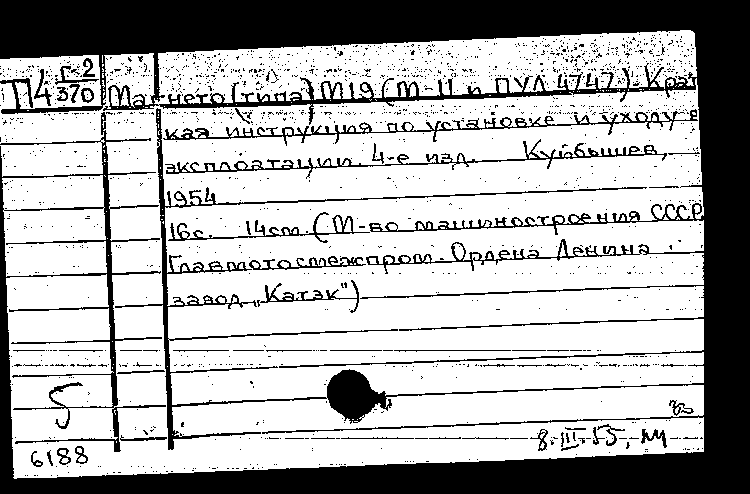 П4 Г-2
370
Магнето (типа) М19 (М-11 и ПУЛ 4747). Крат
кая инструкция по установке и уходу в
эксплоатации. 4-е изд. Куйбышев,
1954
16с. 14см. (М-во машиностроения СССР.
Главмотовелопром. Ордена Ленина
завод „Катэк")
5
6188
8.III.55.